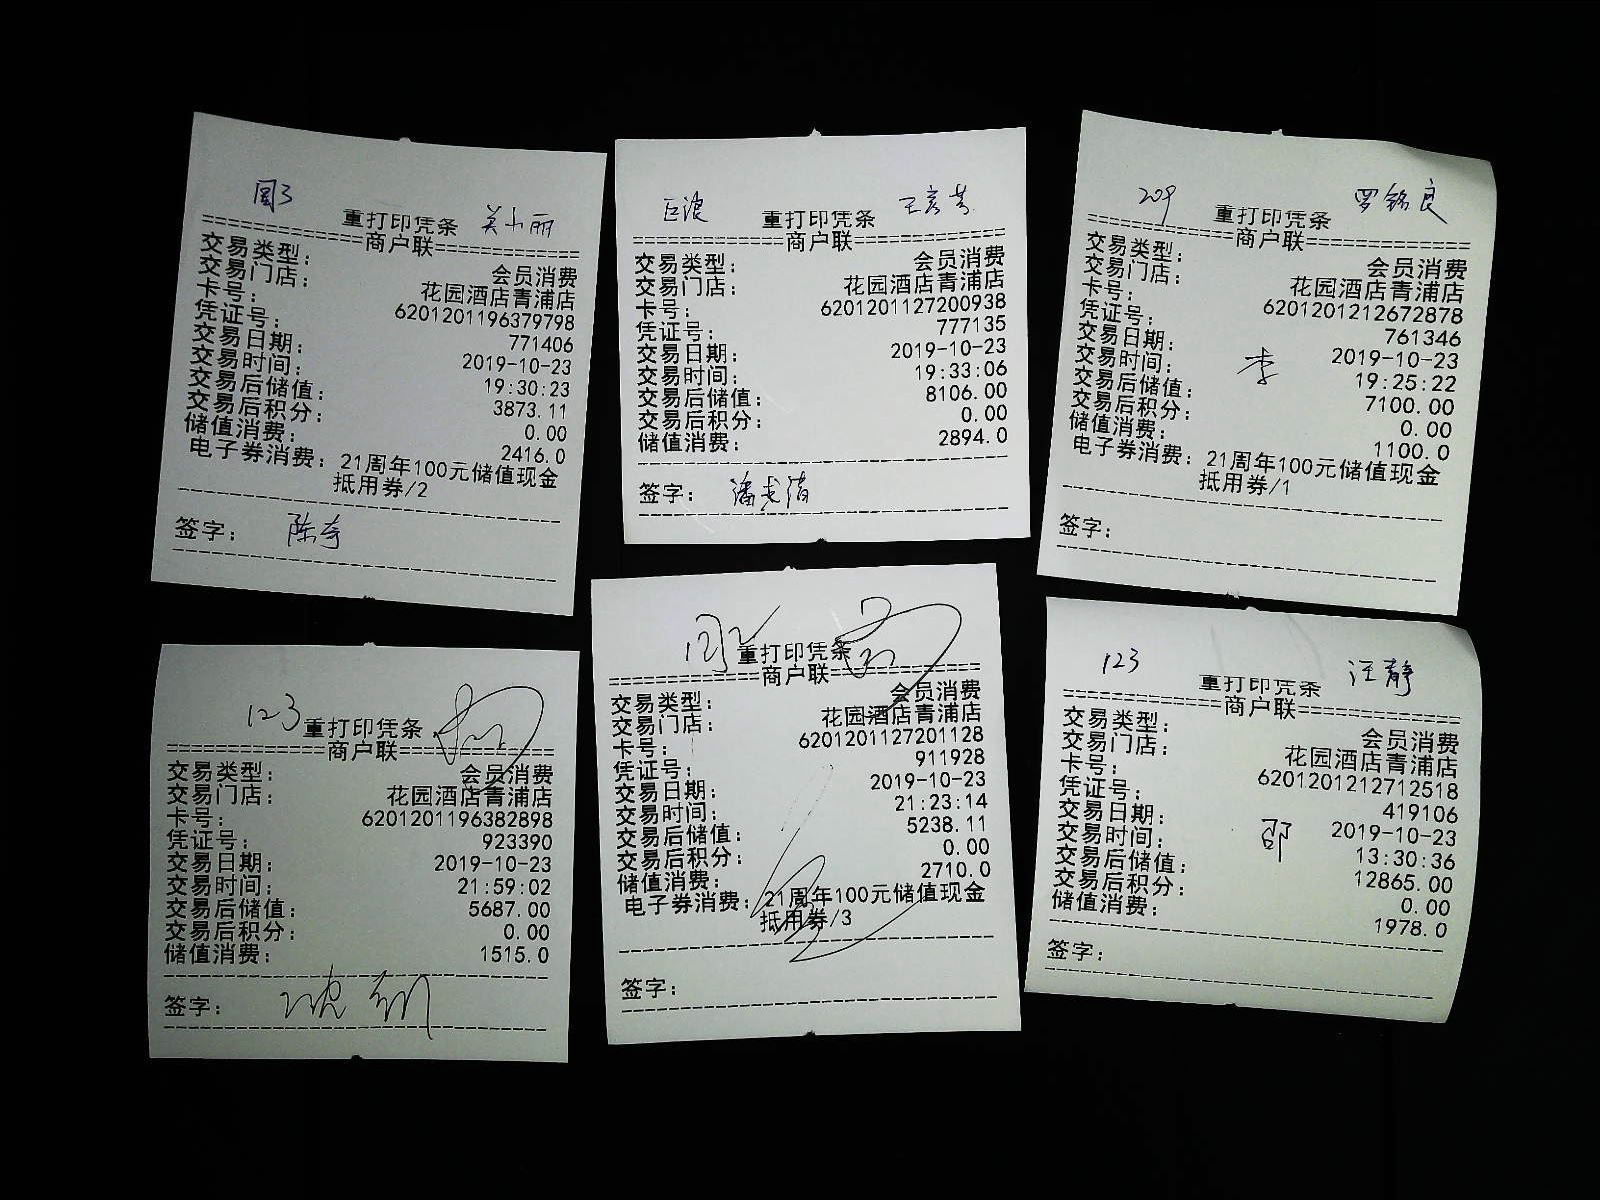 吴小丽
重打印凭条
==========商户联==========
交易类型: 会员消费
交易门店: 花园酒店青浦店
卡号: 6201201196379798
凭证号: 771406
交易日期: 2019-10-23
交易时间: 19:30:23
交易后储值: 3873.11
交易后积分: 0.00
储值消费: 2416.0
电子券消费: 21周年100元储值现金
抵用券/2
签字: 陈奇
巨浪 王彦芳
重打印凭条
==========商户联==========
交易类型: 会员消费
交易门店: 花园酒店青浦店
卡号: 6201201127200938
凭证号: 777135
交易日期: 2019-10-23
交易时间: 19:33:06
交易后储值: 8106.00
交易后积分: 0.00
储值消费: 2894.0
签字:
209 罗铭良
重打印凭条
==========商户联==========
交易类型: 会员消费
交易门店: 花园酒店青浦店
卡号: 6201201212672878
凭证号: 761346
交易日期: 2019-10-23
李
交易时间: 19:25:22
交易后储值: 7100.00
交易后积分: 0.00
储值消费: 1100.0
电子券消费: 21周年100元储值现金
抵用券/1
签字:
123
重打印凭条
==========商户联==========
交易类型: 会员消费
交易门店: 花园酒店青浦店
卡号: 6201201196382898
凭证号: 923390
交易日期: 2019-10-23
交易时间: 21:59:02
交易后储值: 5687.00
交易后积分: 0.00
储值消费: 1515.0
签字:
重打印凭条
==========商户联==========
交易类型: 会员消费
交易门店: 花园酒店青浦店
卡号: 6201201127201128
凭证号: 911928
交易日期: 2019-10-23
交易时间: 21:23:14
交易后储值: 5238.11
交易后积分: 0.00
储值消费: 2710.0
电子券消费: 21周年100元储值现金
抵用券/3
签字:
123 汪静
重打印凭条
==========商户联==========
交易类型: 会员消费
交易门店: 花园酒店青浦店
卡号: 6201201212712518
凭证号: 419106
交易日期: 2019-10-23
邵
交易时间: 13:30:36
交易后储值: 12865.00
交易后积分: 0.00
储值消费: 1978.0
签字: